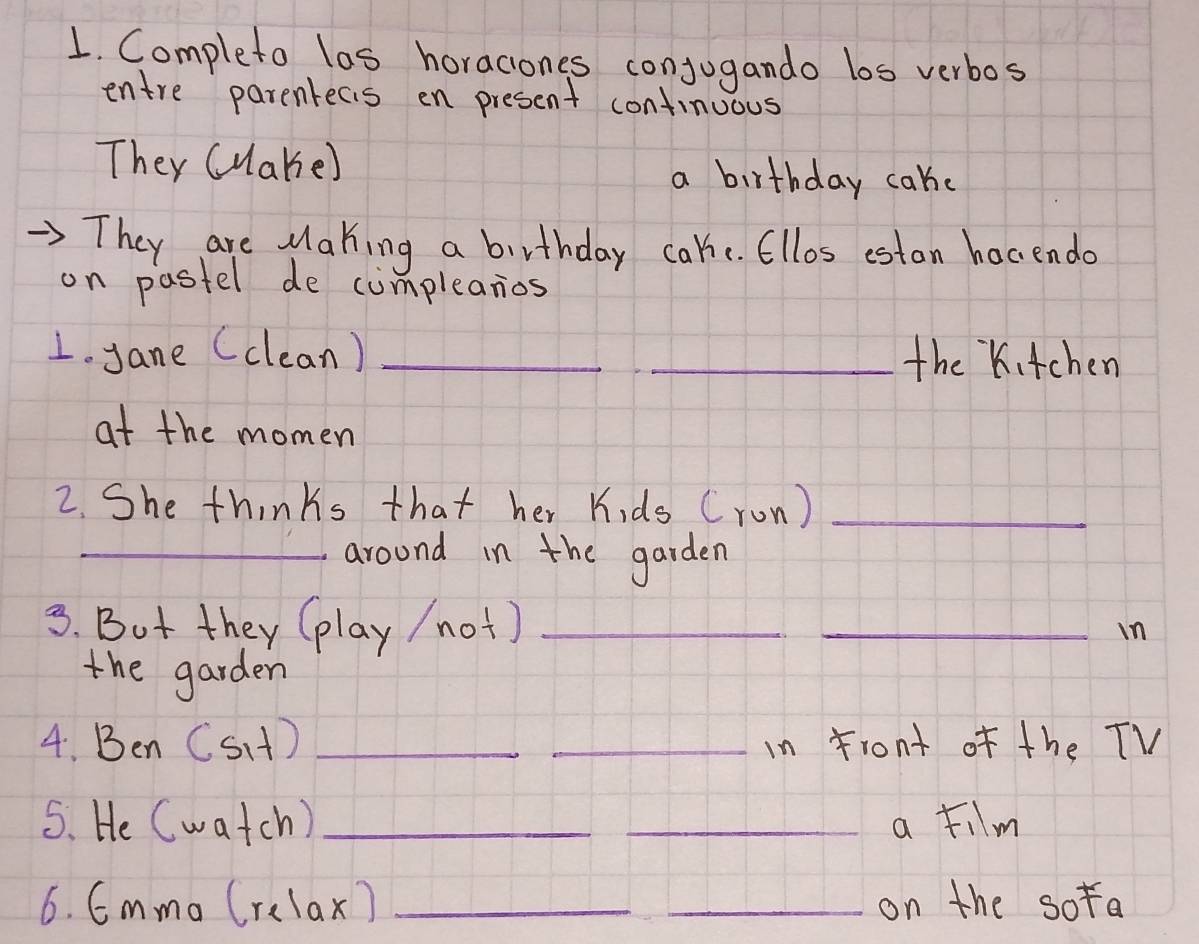 1. Completa las horaciones conjugando los verbos
entre parentecis en present continuous
They (Make) a birthday cake
→ They are Making a birthday cake. Ellos estan haciendo
on pastel de cumpleaños
1. Jane (clean) ________ ________ the Kitchen
at the momen
2. She thinks that her Kids (run) ________
________ around in the garden
3. But they (play/not) ________ ________ in
the garden
4. Ben (sit) ________ ________ in front of the TV
5. He (watch) ________ ________ a film
6. Emma (relax) ________ ________ on the sofa